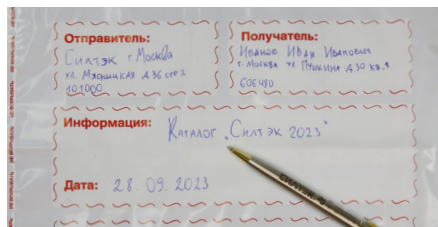 Отправитель:
Силтэк г. Москва
ул. Мясницкая д 36 стр 2
101000
Получатель:
Иванов Иван Иванович
г. Москва ул Пушкина д 30 кв. 8
606480
Информация:
Каталог „Силтэк 2023"
Дата: 28 09. 2023